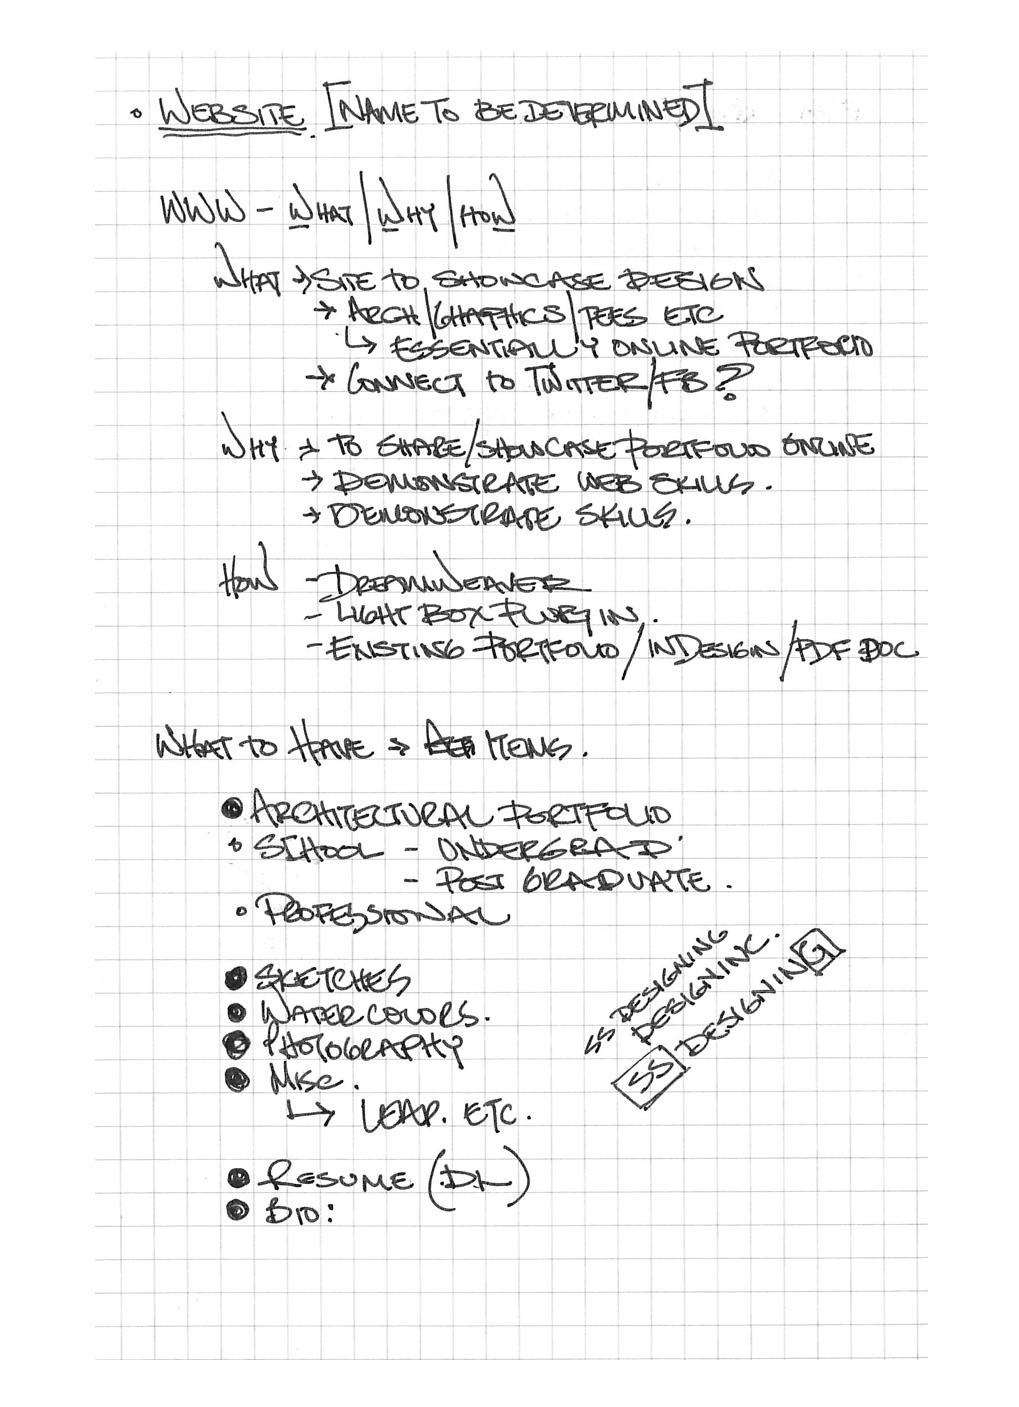 • WEBSITE. [NAME TO BE DETERMINED]
WWW - WHAT/WHY/HOW
WHAT → SITE TO SHOWCASE DESIGN
→ ARCH/GRAPHICS/ ETC
↳ ESSENTIALLY ONLINE PORTFOLIO
→ CONNECT TO TWITTER/FB?
WHY → TO SHARE/SHOWCASE PORTFOLIO ONLINE
→ DEMONSTRATE WEB SKILLS.
→ DEMONSTRATE SKILLS.
HOW - DREAMWEAVER
- LIGHT BOX PLUG IN.
- EXISTING PORTFOLIO/INDESIGN/PDF DOC
WHAT TO HAVE → ITEMS.
• ARCHITECTURAL PORTFOLIO
• SCHOOL - UNDERGRAD
- POST GRADUATE.
• PROFESSIONAL
• SKETCHES
• WATERCOLORS.
• PHOTOGRAPHY
• MISC.
↳ LEAP. ETC.
• RESUME (DL)
• BIO:
SS DESIGNING
DESIGNINC.
SS DESIGNING